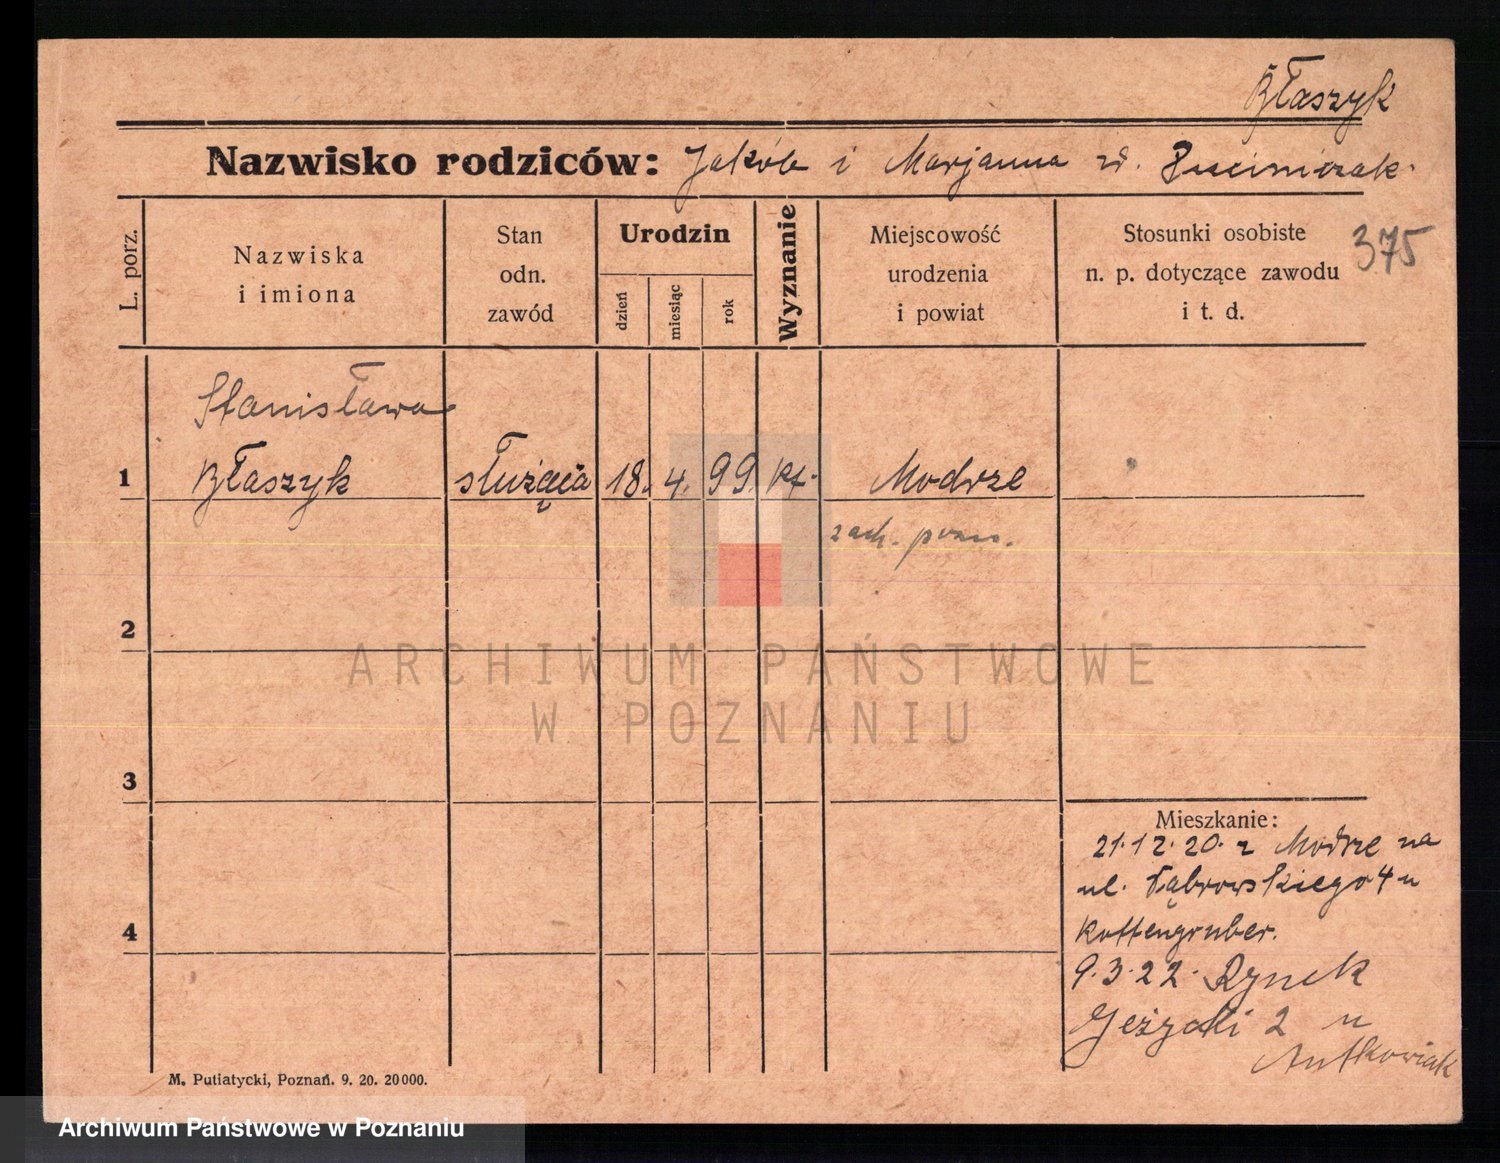 Błaszyk
Nazwisko rodziców: Jakób i Marjanna zd.
L. porz.
Nazwiska
i imiona
Stan
odn.
zawód
Urodzin
dzień
miesiąc
rok
Wyznanie
Miejscowość
urodzenia
i powiat
Stosunki osobiste
n. p. dotyczące zawodu
i t. d.
375
Stanisława
1 Błaszyk służąca 18. 4. 99. kt. Modrze
zach. pozn.
2
3
4
Mieszkanie:
21.12.20. z Modrze na
ul. Dąbrowskiego 4 u
Kottengruber.
9.3.22. Rynek
Jeżycki 2 u
Antkowiak
M. Putiatycki, Poznań. 9. 20. 20000.
ARCHIWUM PAŃSTWOWE
W POZNANIU
Archiwum Państwowe w Poznaniu